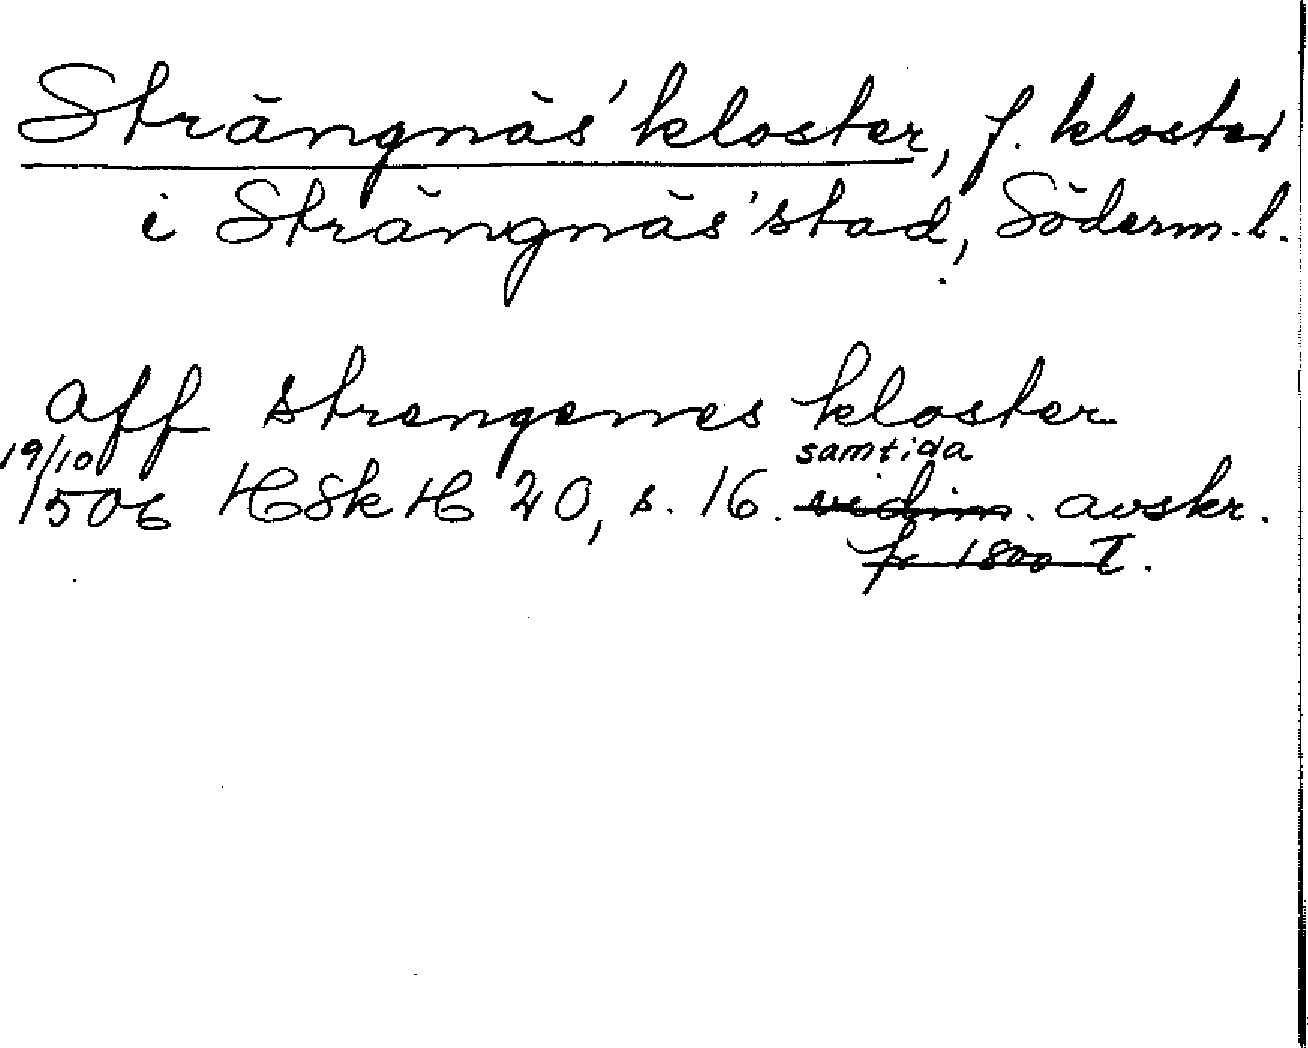 Strängnäs' kloster, f. kloster
i Strängnäs' stad, Söderm. l.
aff strengenes kloster
19/10 samtida
1506 HSkH 20, s. 16. vidim. avskr.
fr 1800 T.